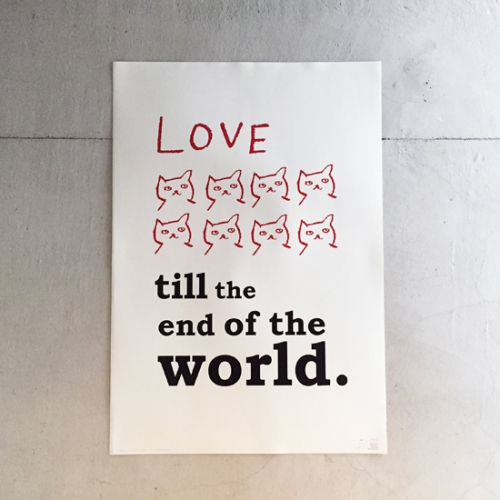 LOVE
till the
end of the
world.